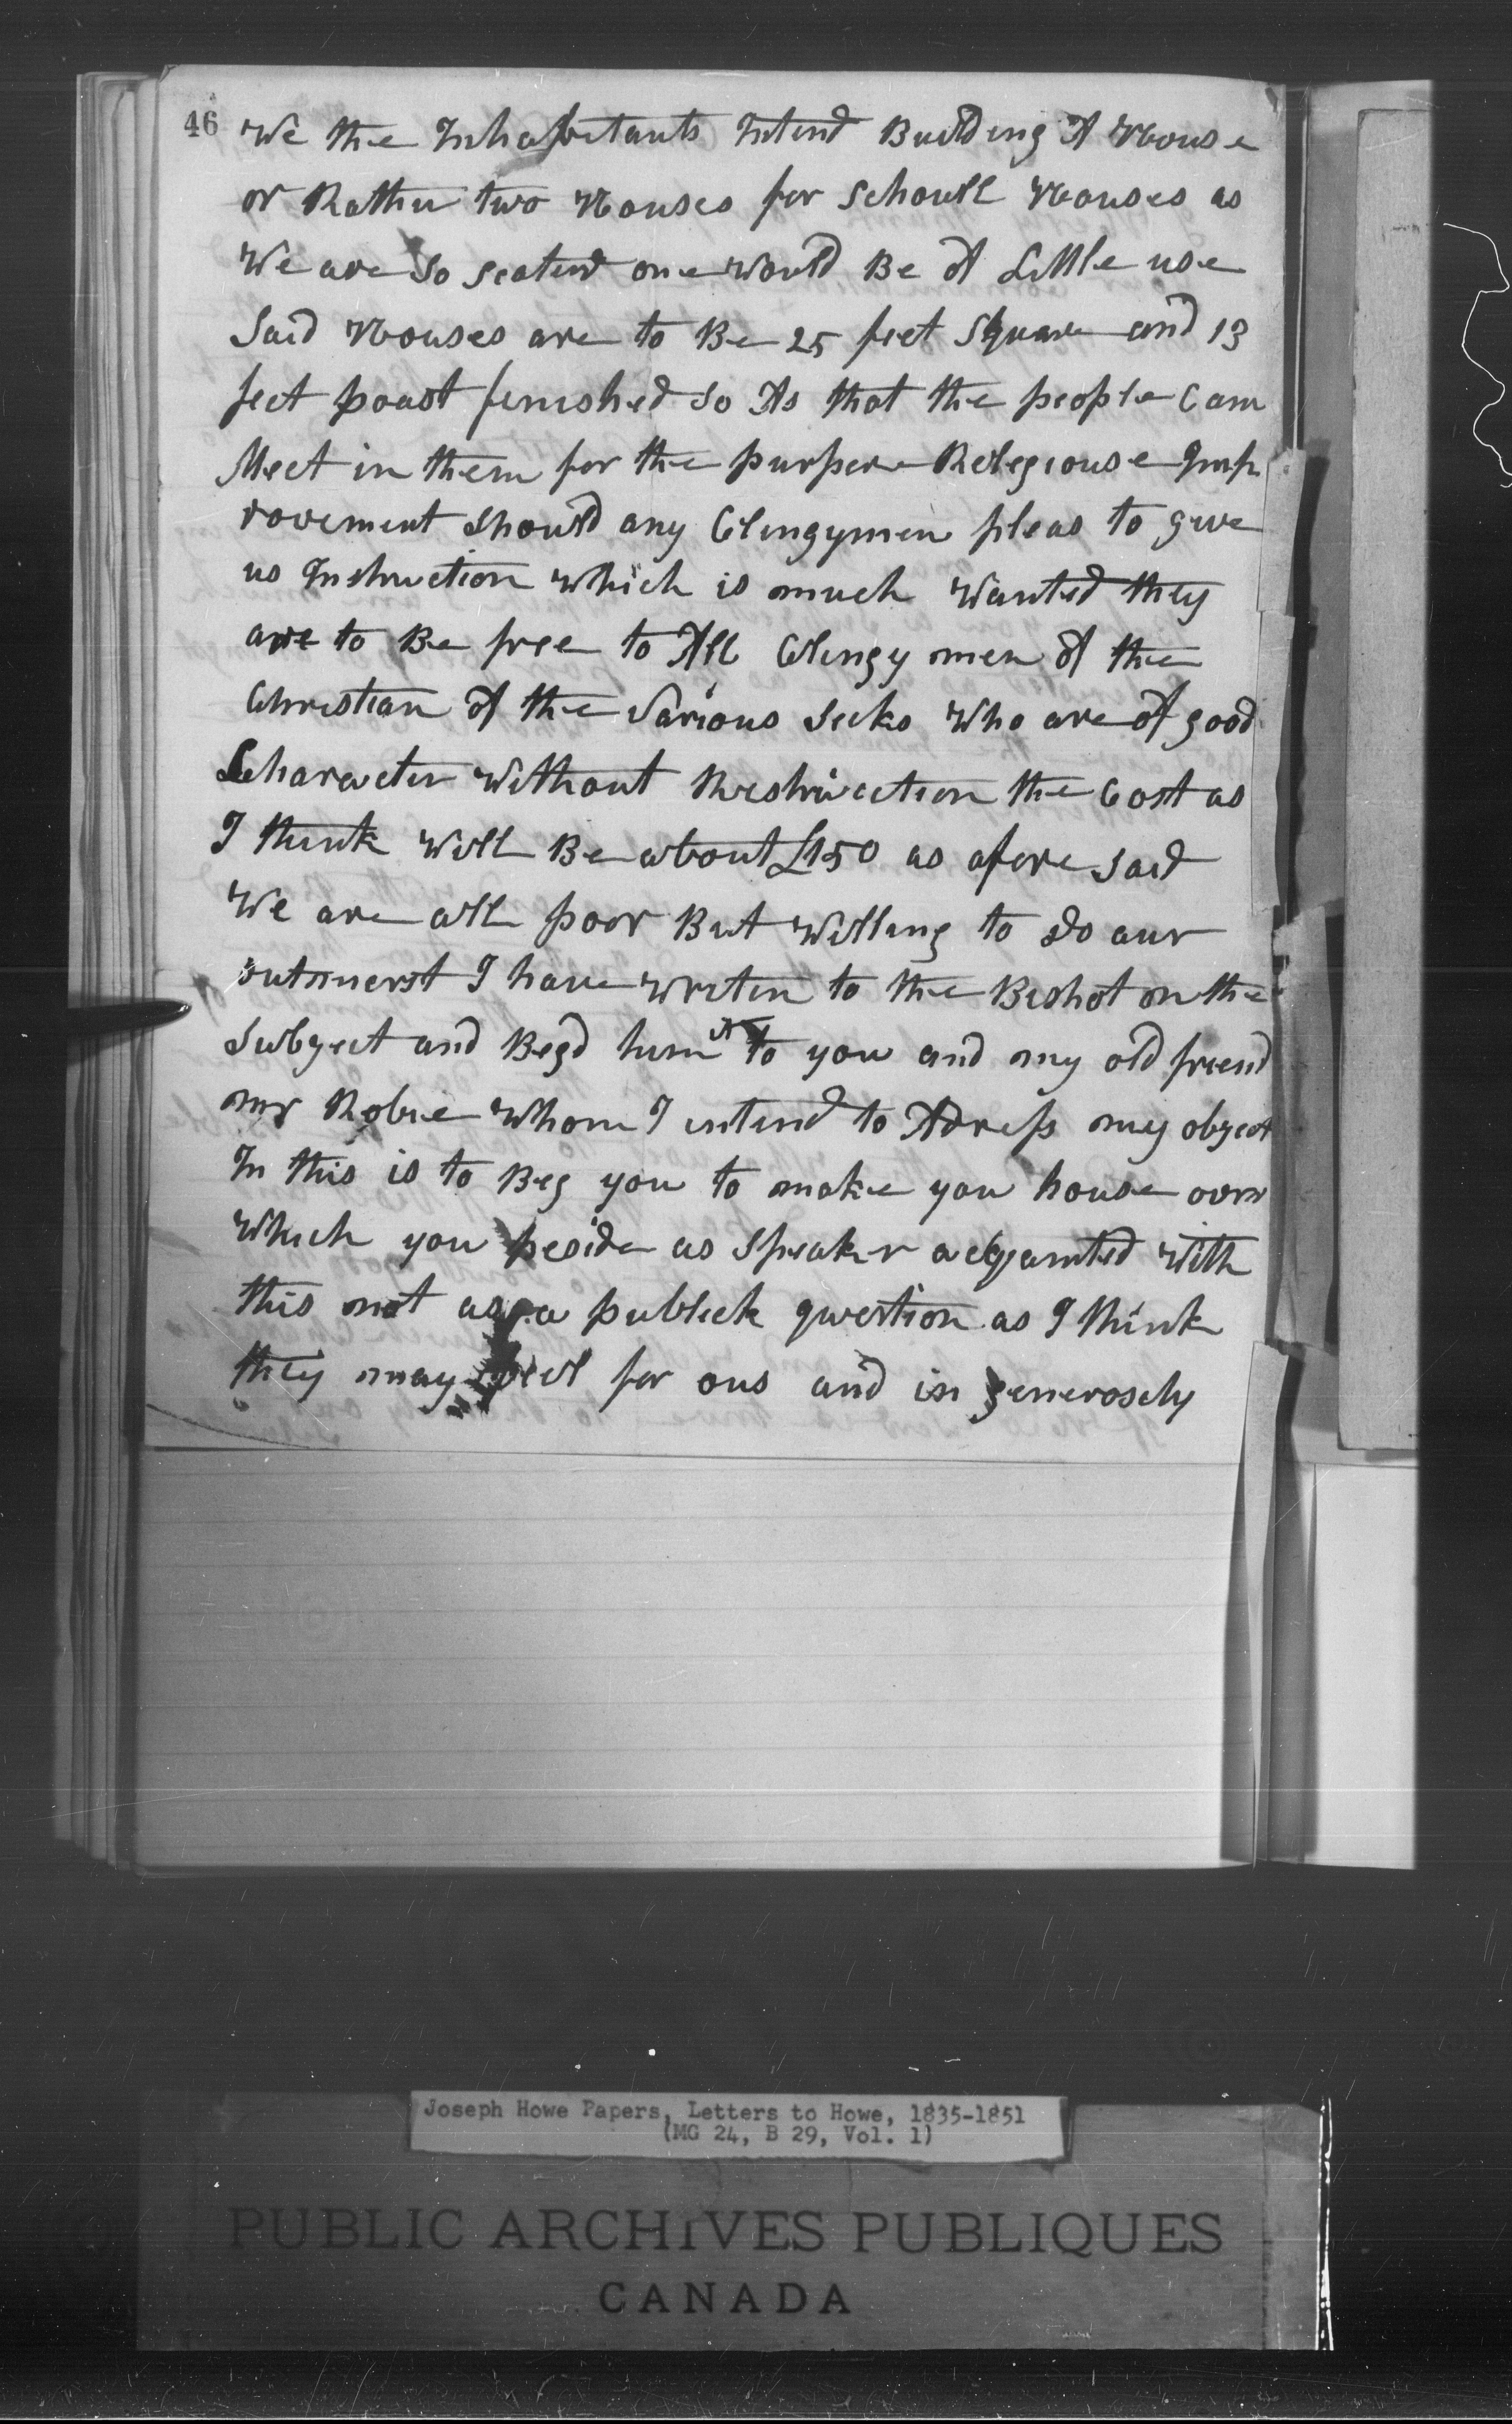 46 We the Inhabitants Intend Building A House
or Rather two Houses for Schoull Houses as
We are So scatterd one Would Be of Little use
Said Houses are to Be 25 feet Square and 13
feet poast finished So As that the people Can
Meet in them for the purpose Religiouse Imp
rovement Should any Clergymen pleas to give
us Instruction Which is much Wanted they
are to Be free to All Clergy men of the
Christian of the Various Secks Who are of good
Character Without Restruction the Cost as
I think Will Be about £150 as afore Said
We are all poor But Willing to do our
outmorst I have Writen to the Bishop on the
Subject and Begd him to you and my old friend
mr Robie Whom I intend to Adress my object
In this is to Beg you to make you house over
Which you preside as Speaker acquainted With
this not as a publick question as I think
they may feel for ous and in generosely
Joseph Howe Papers, Letters to Howe, 1835-1851
(MG 24, B 29, Vol. 1)
PUBLIC ARCHIVES PUBLIQUES
CANADA